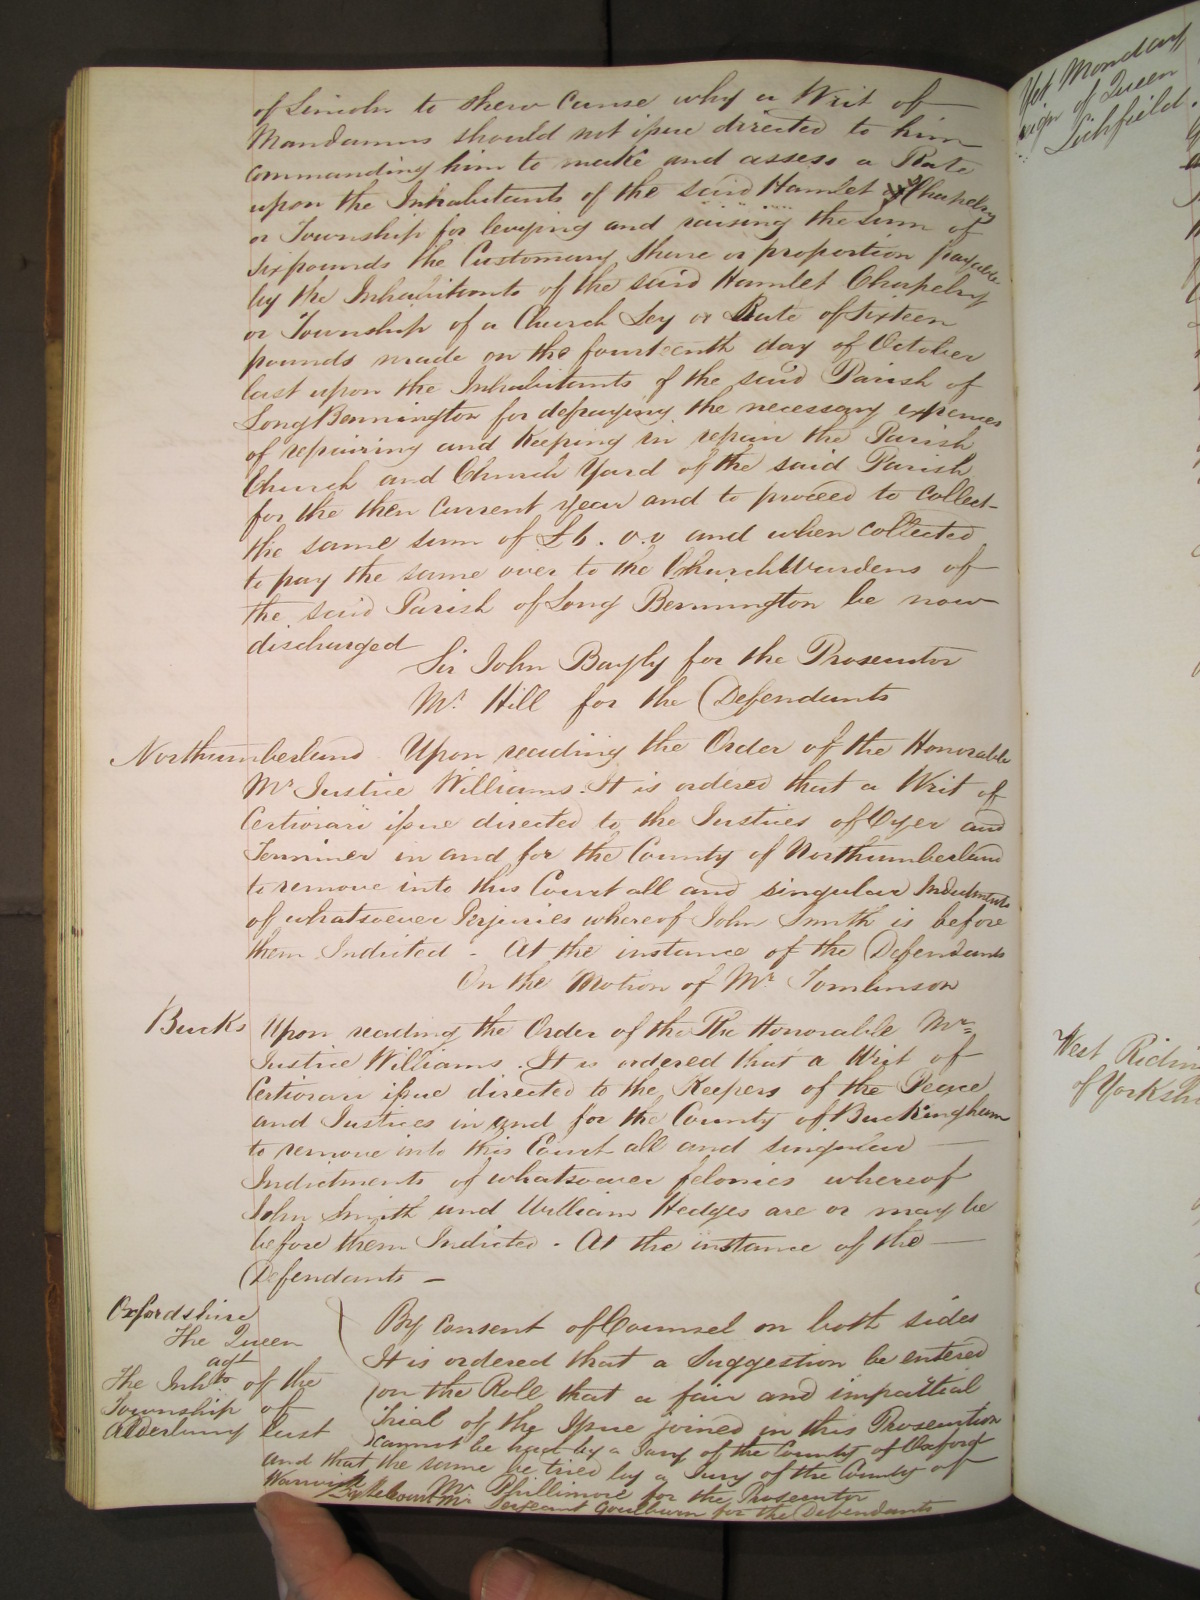 of Lincoln to shew Cause why a Writ of
Mandamus should not issue directed to him
commanding him to make and assess a Rate
upon the Inhabitants of the said Hamlet Chapelry
or Township for levying and raising the sum of
Six pounds the Customary share or proportion payable
by the Inhabitants of the said Hamlet Chapelry
or Township of a Church Ley or Rate of Sixteen
pounds made on the fourteenth day of October
last upon the Inhabitants of the said Parish of
Long Bennington for defraying the necessary expences
of repairing and Keeping in repair the Parish
Church and Church Yard of the said Parish
for the then Current year and to proceed to Collect
the same sum of £6. 0. 0 and when collected
to pay the same over to the ChurchWardens of
the said Parish of Long Bennington be now
discharged
Sir John Bayly for the Prosecutor
Mr. Hill for the Defendants
Northumberland Upon reading the Order of the Honorable
Mr Justice Williams. It is ordered that a Writ of
Certiorari issue directed to the Justices of Oyer and
Terminer in and for the County of Northumberland
to remove into this Court all and singular Indictments
of whatsoever Perjuries whereof John Smith is before
them Indicted - At the instance of the Defendants
On the Motion of Mr. Tomlinson
Bucks Upon reading the Order of the The Honorable Mr
Justice Williams. It is ordered that a Writ of
Certiorari issue directed to the Keepers of the Peace
and Justices in and for the County of Buckingham
to remove into this Court all and singular
Indictments of whatsoever felonies whereof
John Smith and William Hedges are or may be
before them Indicted. At the instance of the
Defendants
Oxfordshire
The Queen
agt
The Inhts of the
Township of
Alderbury East
By consent of Counsel on both sides
It is ordered that a Suggestion be entered
on the Roll that a fair and impartial
Trial of the Issue joined in this Prosecution
cannot be had by a Jury of the County of Oxford
and that the same be tried by a Jury of the County of
Warwick By the Court Mr. Phillimore for the Prosecutor
Mr. Sergeant Goulburn for the Defendants
Yet Monday
reign of Queen
Lichfield.
West Ridin
of Yorkshi